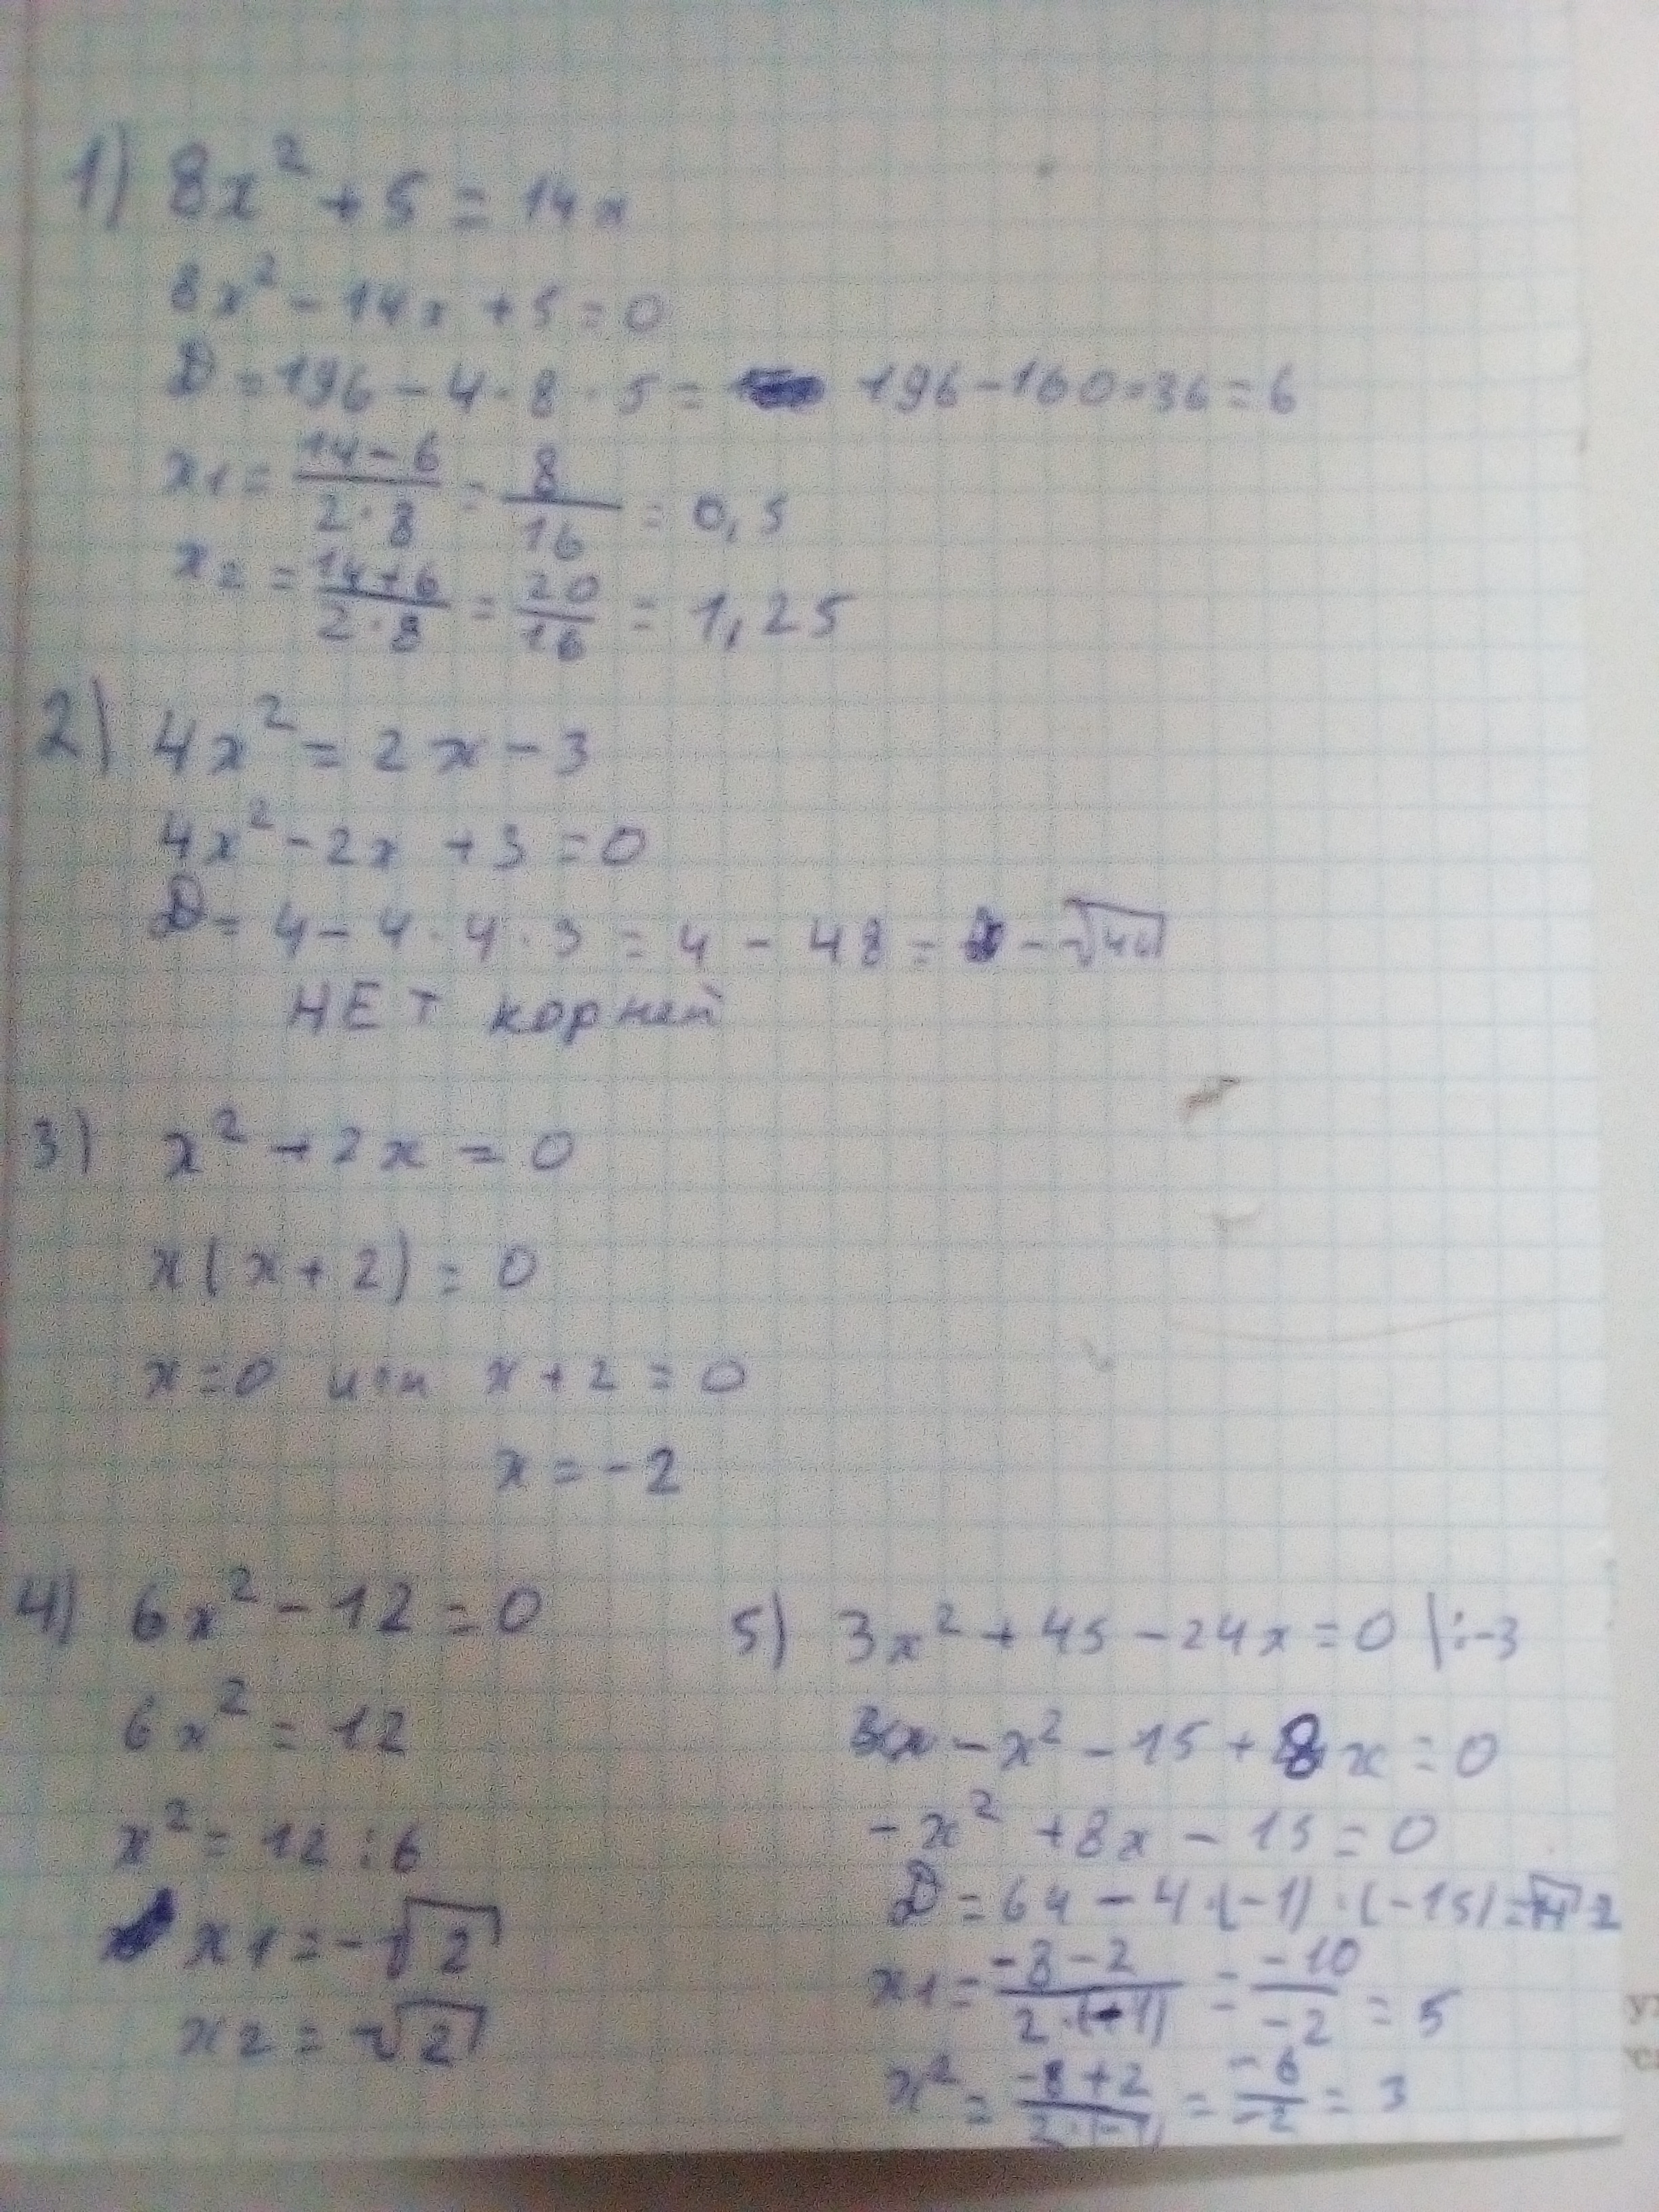 1) 8x² + 5 = 14x
8x² - 14x + 5 = 0
D = 196 - 4 · 8 · 5 = 196 - 160 = 36 = 6
x1 = (14 - 6)/(2 · 8) = 8/16 = 0,5
x2 = (14 + 6)/(2 · 8) = 20/16 = 1,25
2) 4x² = 2x - 3
4x² - 2x + 3 = 0
D = 4 - 4 · 4 · 3 = 4 - 48 = - √44
НЕТ корней
3) x² + 2x = 0
x(x + 2) = 0
x = 0 или x + 2 = 0
x = -2
4) 6x² - 12 = 0
6x² = 12
x² = 12 : 6
x1 = -√2
x2 = √2
5) 3x² + 45 - 24x = 0 | : -3
- x² - 15 + 8x = 0
- x² + 8x - 15 = 0
D = 64 - 4 · (-1) · (-15) = √4 = 2
x1 = (-8 - 2)/(2 · (-1)) = -10/-2 = 5
x² = (-8 + 2)/(2 · (-1)) = -6/-2 = 3